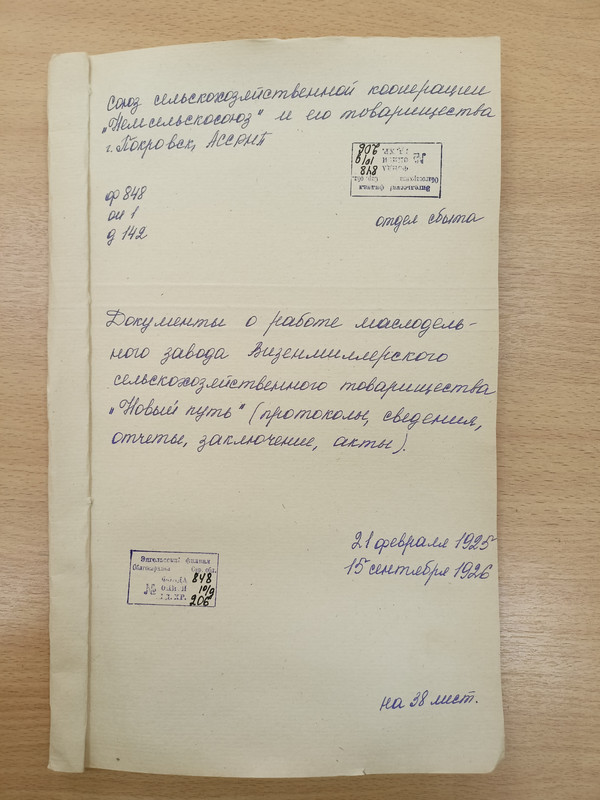 Союз сельскохозяйственной кооперации
„Немсельскосоюз" и его товарищества
г. Покровск, АССРНП
Энгельсский филиал
Облгосархива Сар. обл.
ФОНДА 848
№ ОПИСИ 10/9
ЕД. ХР. 206
ф 848
оп 1
д 142
отдел сбыта
Документы о работе маслодель-
ного завода Визенмиллерского
сельскохозяйственного товарищества
„Новый путь" (протоколы, сведения,
отчеты, заключение, акты).
21 февраля 1925
15 сентября 1926
Энгельсский филиал
Облгосархива Сар. обл.
ФОНДА 848
№ ОПИСИ 10/9
ЕД. ХР. 206
на 38 лист.